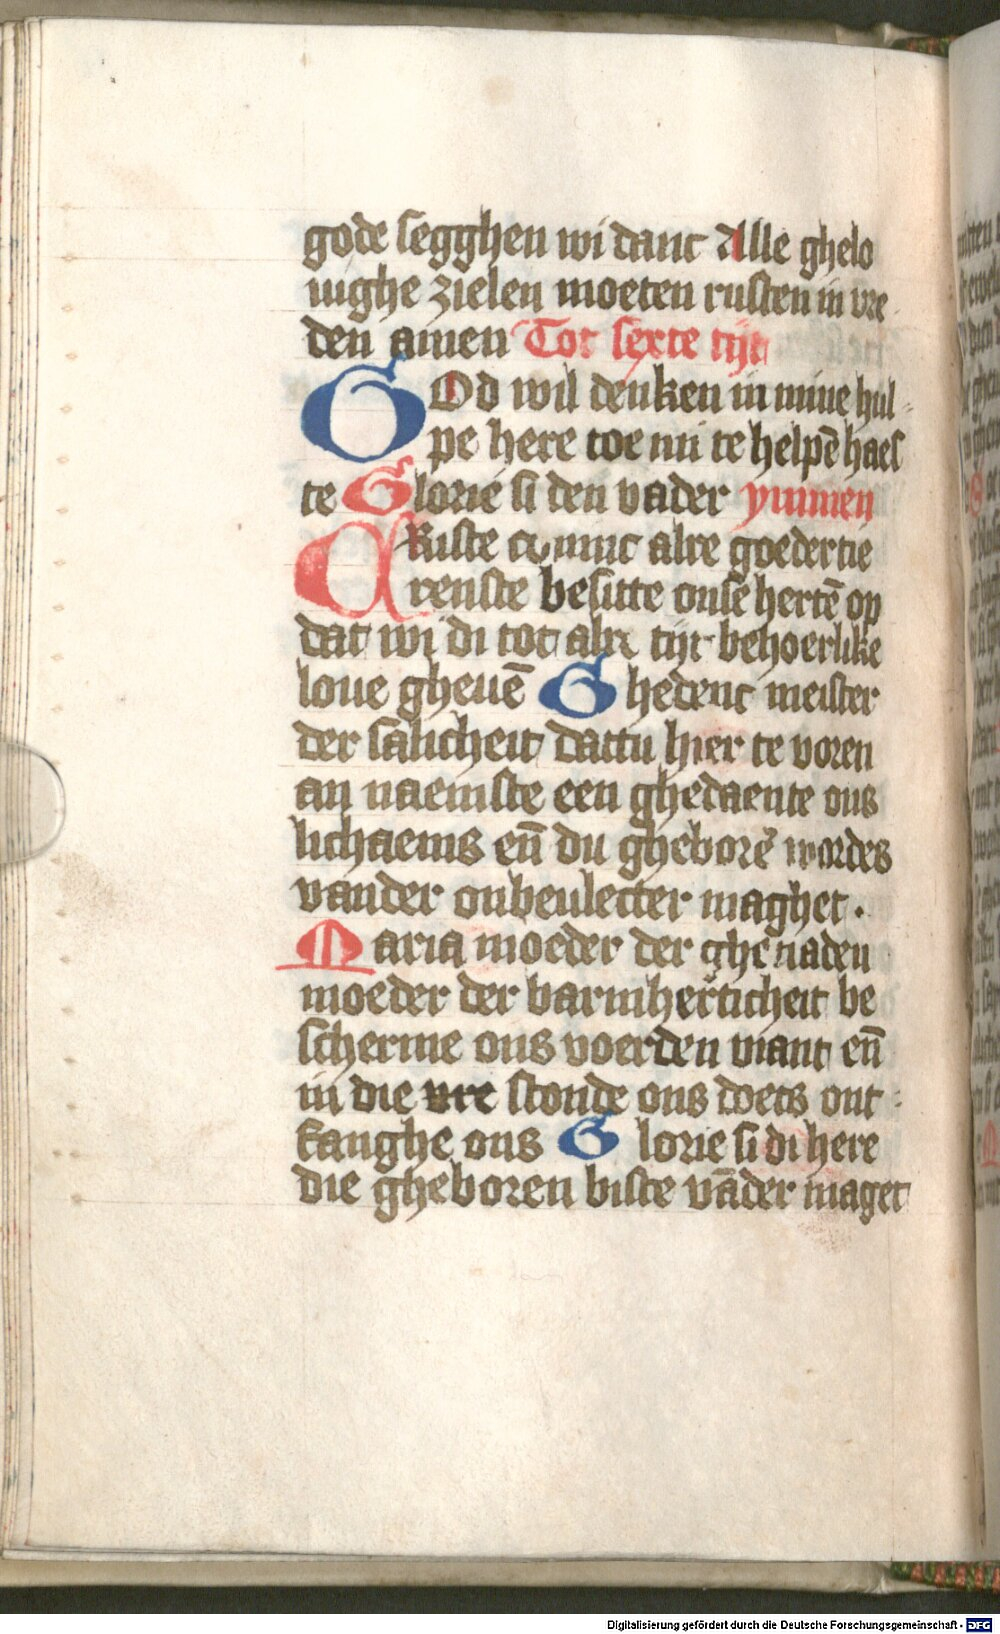 gode segghen wi danc Alle ghelo
uighe zielen moeten rusten in vre
den amen Tot sexte tijt
GOd wil denken in mine hul
pe here toe mi te helpē haes
te Glorie si den vader ymmen
CRiste coninc alre goedertie
renste besitte onse hertē op
dat wi di tot alre tijt behoerlike
loue gheuē Ghedenc meister
der salicheit dattu hier te voren
an naemste een ghedaente ons
lichaems eñ du gheborē wordes
vander onbeulecter maghet.
Maria moeder der ghenaden
moeder der barmherticheit be
scherme ons voer den viant eñ
in die vre stonde ons doets ont
fanghe ons Glorie si di here
die gheboren biste vāder maget
Digitalisierung gefördert durch die Deutsche Forschungsgemeinschaft - DFG